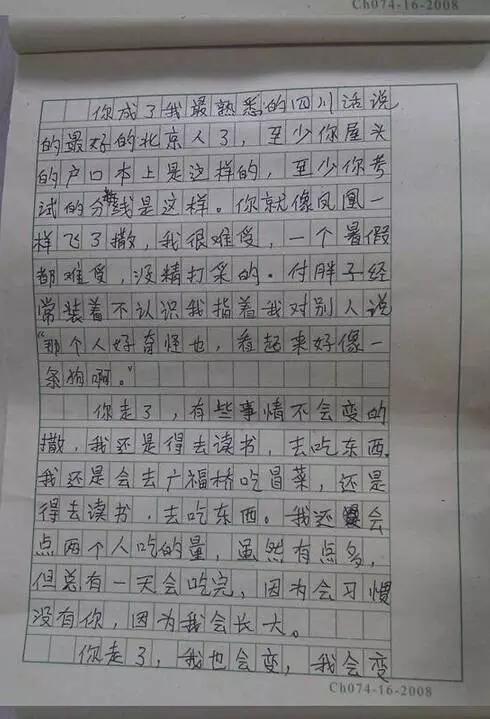 Ch074-16-2008
你成了我最熟悉的四川话说
的最好的北京人了，至少你屋头
的户口本上是这样的，至少你考
试的分数线是这样。你就像凤凰一
样飞了撒，我很难受，一个暑假
都难受，没精打采的。付胖子经
常装着不认识我指着我对别人说
“那个人好奇怪也，看起来好像一
条狗啊。”
你走了，有些事情不会变的
撒，我还是得去读书，去吃东西。
我还是会去广福桥吃冒菜，还是
得去读书，去吃东西。我还会
点两个人吃的量，虽然有点多，
但总有一天会吃完，因为会习惯
没有你，因为我会长大。
你走了，我也会变，我会变
Ch074-16-2008